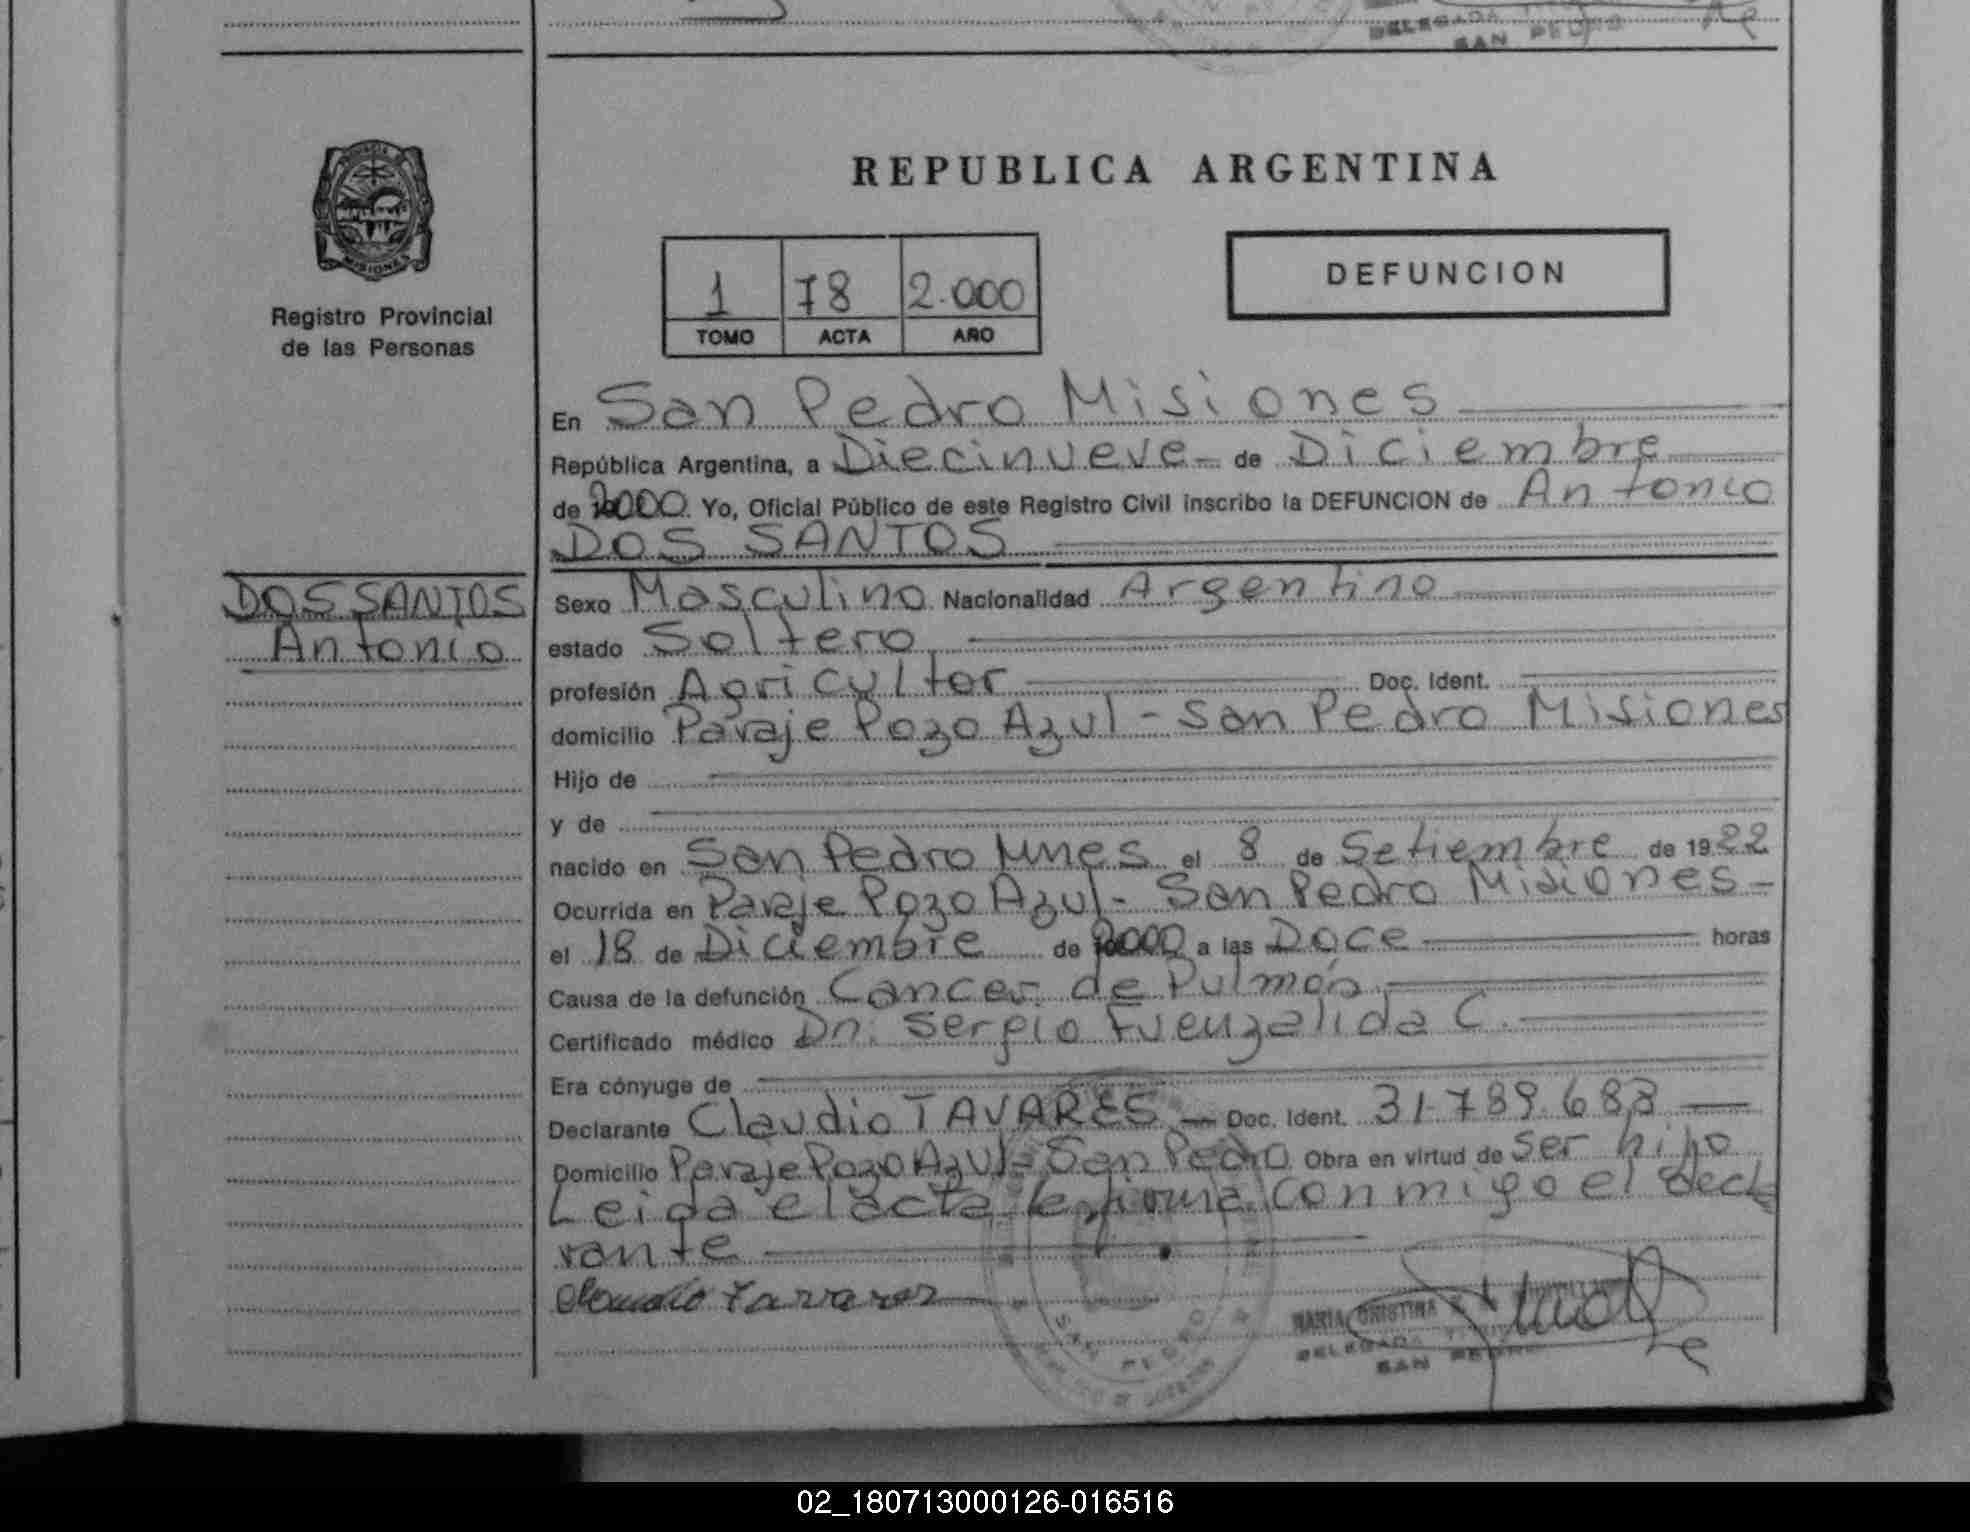 DELEGADA
SAN PEDRO
REPUBLICA ARGENTINA
PROVINCIA DE
MISIONES
Registro Provincial
de las Personas
1 78 2.000
TOMO ACTA AÑO
DEFUNCION
En San Pedro Misiones
República Argentina, a Diecinueve de Diciembre
de 2000. Yo, Oficial Público de este Registro Civil inscribo la DEFUNCION de Antonio
DOS SANTOS
DOS SANTOS
Antonio
Sexo Masculino Nacionalidad Argentino
estado Soltero
profesión Agricultor Doc. Ident.
domicilio Paraje Pozo Azul - San Pedro Misiones
Hijo de
y de
nacido en San Pedro Mnes el 8 de Setiembre de 1922
Ocurrida en Paraje Pozo Azul - San Pedro Misiones -
el 18 de Diciembre de 2000 a las Doce horas
Causa de la defunción Cancer de Pulmón
Certificado médico Dr. Sergio Fuenzalida C.
Era cónyuge de
Declarante Claudio TAVARES - Doc. Ident. 31.789.688
Domicilio Paraje Pozo Azul - San Pedro Obra en virtud de ser hijo
Leida el acta la firma conmigo el decla
rante
Claudio Tavares
MARIA CRISTINA
DELEGADA
SAN PEDRO
SAN PEDRO
02_180713000126-016516